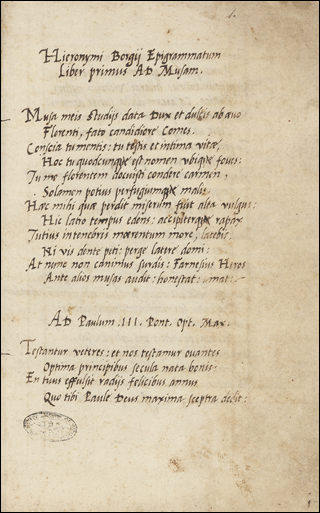 1.
Hieronymi Borgij Epigrammatum
Liber primus AD Musam.
Musa meis studijs data Dux et dulcis ab ævo
Florenti, fato candidiore Comes.
Conscia tu mentis: tu testis et intima vitæ,
Hoc tu quodcunque est nomen ubique foves:
Tu me florentem docuisti condere carmen,
Solamen potus perfugiumque malis
Hæc mihi quæ perdit miserum fuit alea vulgus:
Hic latro tempus edens: accipiterque rapax
Tutius in tenebris mœrentum more, latebis
Ni vis dente peti: perge latere domi:
At nunc non canimus surdis: Farnesius Heros
Ante alios musas audit: honestat: amat:
AD Paulum .III. Pont. Opt. Max.
Testantur veteres: et nos testamur ovantes
Optima principibus secula nata bonis:
En tuus effulsit radijs felicibus annus
Quo tibi Paule Deus maxima sceptra dedit: